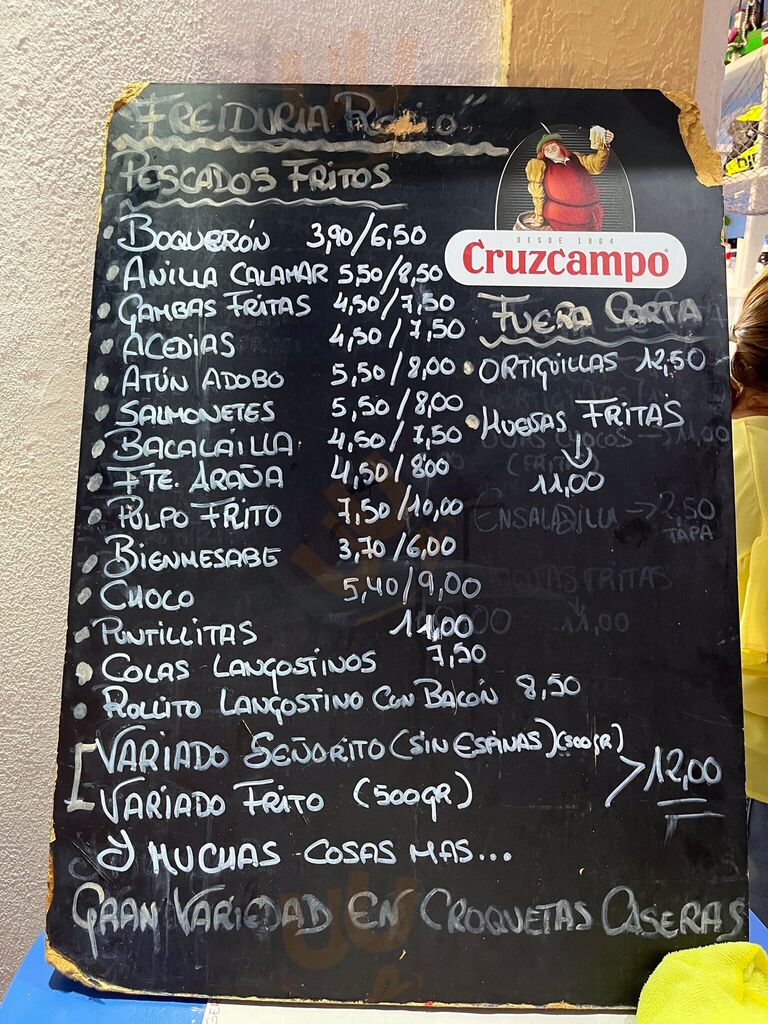 "FREIDURIA
PESCADOS FRITOS
DESDE 1904
Cruzcampo
• BOQUERÓN 3,90/6,50
• ANILLA CALAMAR 5,50/8,50
• GAMBAS FRITAS 4,50/7,50
• ACEDIAS 4,50/7,50
• ATÚN ADOBO 5,50/8,00
• SALMONETES 5,50/8,00
• BACALAILLA 4,50/7,50
• FTE. ARAÑA 4,50/800
• PULPO FRITO 7,50/10,00
• BIENMESABE 3,70/6,00
• CHOCO 5,40/9,00
• PUNTILLITAS 11,00
• COLAS LANGOSTINOS 7,50
• ROLLITO LANGOSTINO CON BACÓN 8,50
FUERA CARTA
• ORTIGUILLAS 12,50
• HUEBAS FRITAS
↓
11,00
ENSALADILLA → 2,50
TAPA
FRITAS
11,00
[VARIADO SEÑORITO (SIN ESPINAS) (500GR)
VARIADO FRITO (500GR) > 12,00
Y MUCHAS COSAS MAS...
GRAN VARIEDAD EN CROQUETAS CASERAS